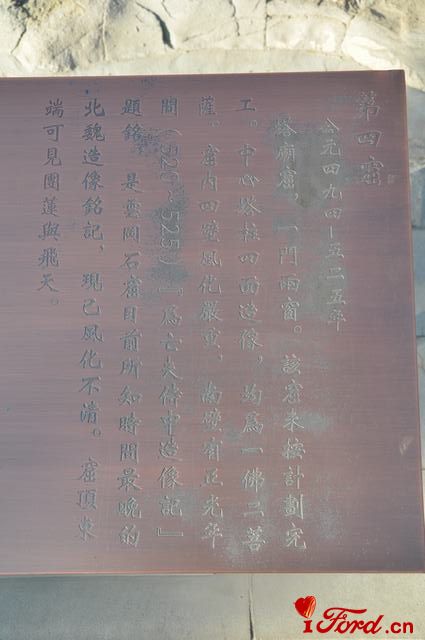 第四窟
公元四九四–五二五年
塔廟窟，一門兩窗。該窟未按計劃完
工。中心塔柱四面造像，均為一佛二菩
薩。窟内四壁風化嚴重，南壁有正光年
間（520–525）『為亡夫侍中造像記』
題銘，是雲岡石窟目前所知時間最晚的
北魏造像銘記，現已風化不清。窟頂東
端可見團蓮與飛天。
iFord.cn